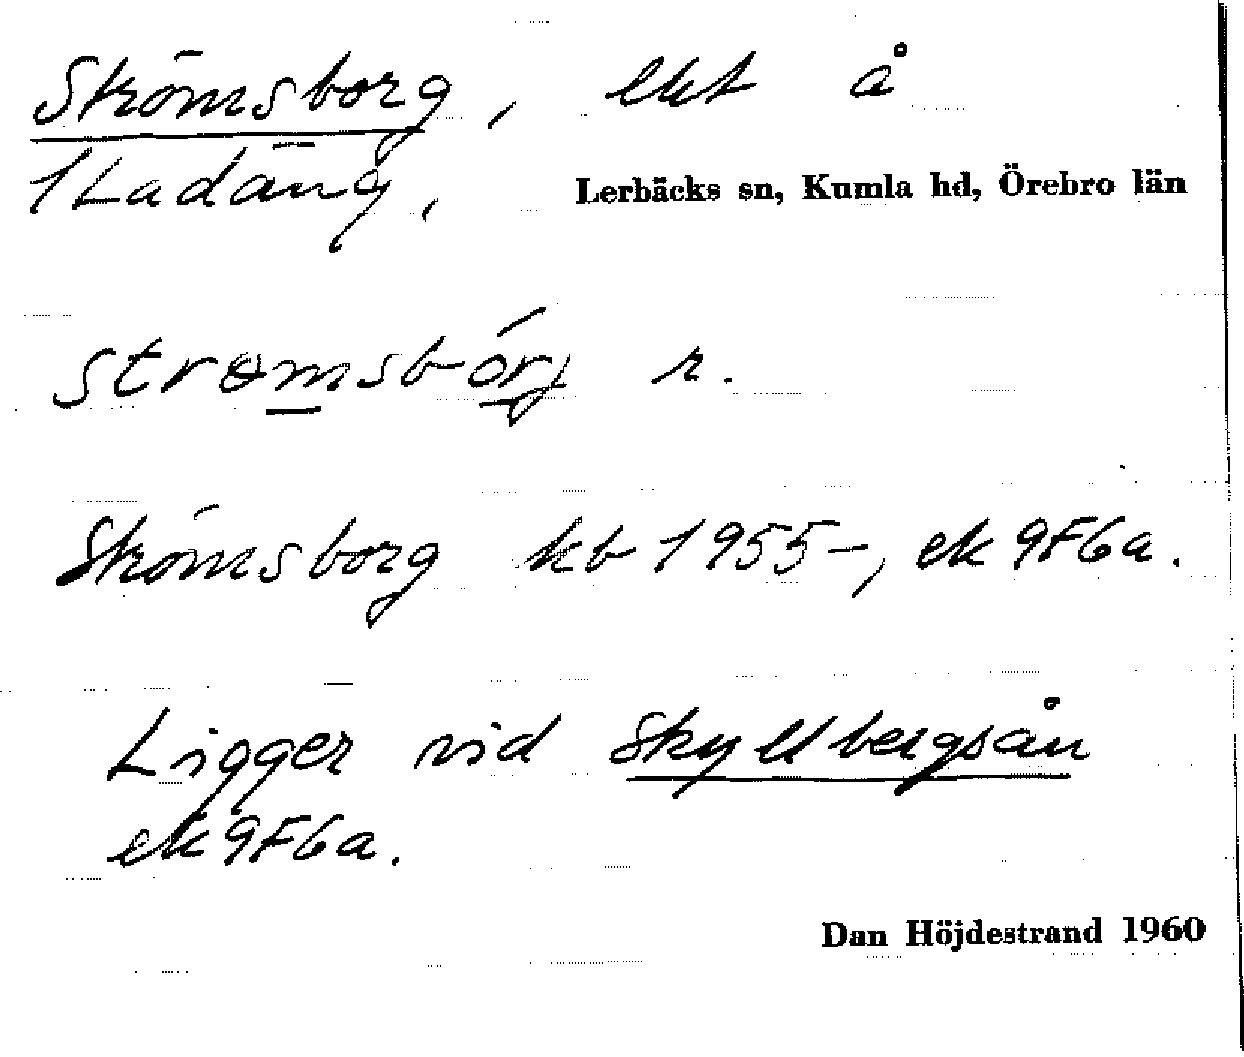 Strömsborg, lht å
1 Ladäng,
Lerbäcks sn, Kumla hd, Örebro län
strɵmsbórj r.
Strömsborg kb 1955–, ek 9F6a.
Ligger vid Skyllbergsån
ek 9F6a.
Dan Höjdestrand 1960